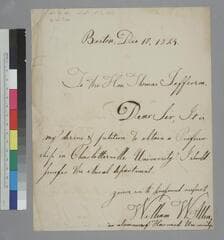 Boston, Dec 18, 1824.
To the Hon. Thomas Jefferson.
Dear Sir, It is
my desire & petition to obtain a Professor
ship in Charlottesville University. I should
prefer the medical department.
yours with profound respect,
William W.
an alumnus of Harvard University